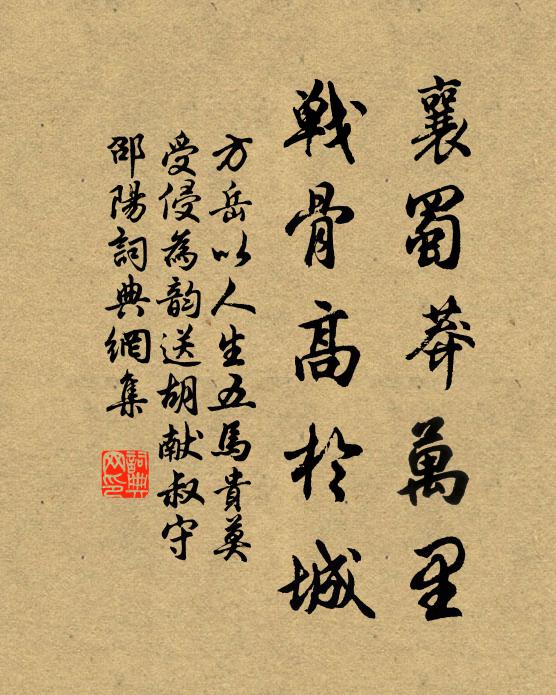 襄蜀莽萬里
戦骨高於城
方岳以人生五馬貴莫
受侵為韵送胡献叔守
邵陽詞典網集
詞典
网印